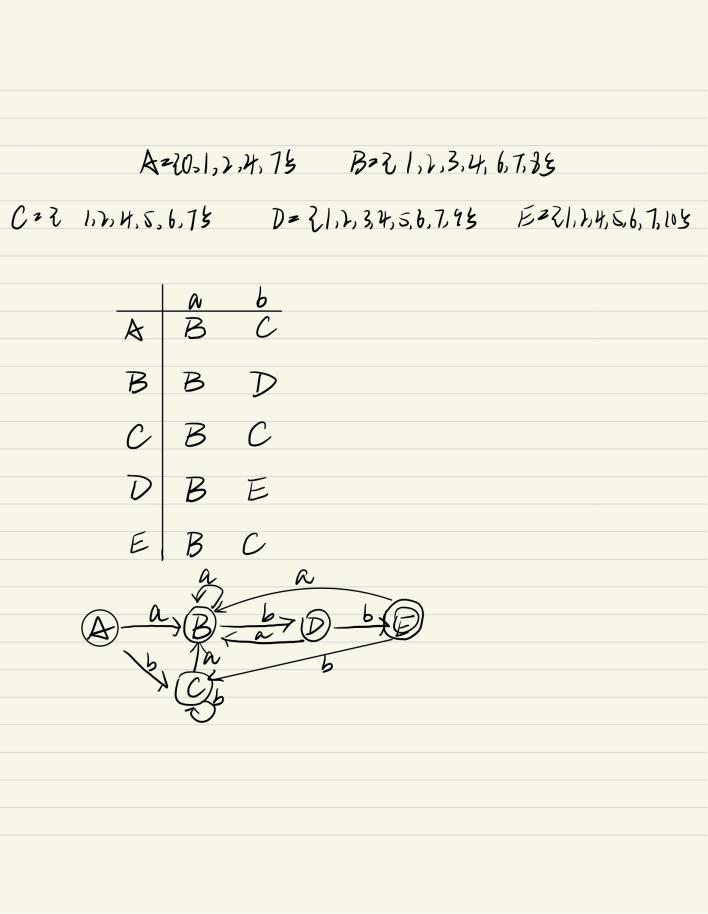 A={0,1,2,4,7} B={ 1,2,3,4,6,7,8}
C={ 1,2,4,5,6,7} D={1,2,3,4,5,6,7,9} E={1,2,4,5,6,7,10}
a b
A B C
B B D
C B C
D B E
E B C
a a
A a B b a D b E
b a b
C b